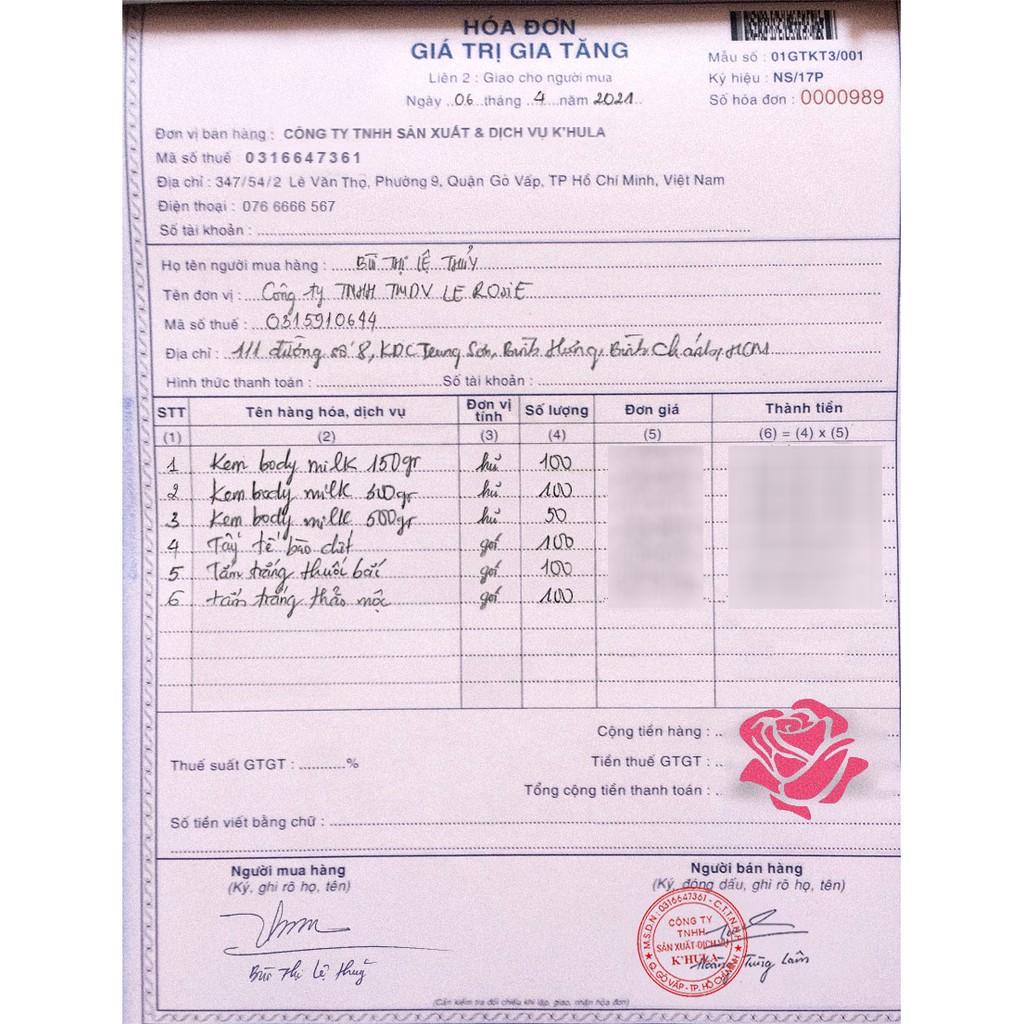 HÓA ĐƠN
GIÁ TRỊ GIA TĂNG
Liên 2 : Giao cho người mua
Ngày ..06..tháng ..4....năm 2021..
Mẫu số : 01GTKT3/001
Ký hiệu : NS/17P
Số hóa đơn : 0000989
Đơn vị bán hàng : CÔNG TY TNHH SẢN XUẤT & DỊCH VỤ K'HULA
Mã số thuế : 0316647361
Địa chỉ : 347/54/2 Lê Văn Thọ, Phường 9, Quận Gò Vấp, TP Hồ Chí Minh, Việt Nam
Điện thoại : 076 6666 567
Số tài khoản :
Họ tên người mua hàng : BÙI THỊ LỆ THỦY
Tên đơn vị : Công ty TNHH TMDV LE ROSIE
Mã số thuế : 0315910644
Địa chỉ : 111 đường số 8, KDC Trung Sơn, Bình Hưng, Bình Chánh, HCM
Hình thức thanh toán : Số tài khoản :
STT Tên hàng hóa, dịch vụ Đơn vị tính Số lượng Đơn giá Thành tiền
(1) (2) (3) (4) (5) (6) = (4) x (5)
1 Kem body milk 150gr hủ 100
2 Kem body milk 300gr hủ 100
3 Kem body milk 500gr hủ 50
4 Tẩy tế bào chết gói 100
5 Tắm trắng thuốc bắc gói 100
6 tắm trắng thảo mộc gói 100
Cộng tiền hàng :
Thuế suất GTGT : ...........% Tiền thuế GTGT :
Tổng cộng tiền thanh toán :
Số tiền viết bằng chữ :
Người mua hàng Người bán hàng
(Ký, ghi rõ họ, tên) (Ký, đóng dấu, ghi rõ họ, tên)
M.S.D.N: 0316647361 - C.T.T.N.H.H
CÔNG TY
TNHH
SẢN XUẤT-DỊCH VỤ
K'HULA
Q. GÒ VẤP - TP. HỒ CHÍ MINH
Bùi Thị Lệ Thuỷ Hoàng Trung Lâm
(Cần kiểm tra đối chiếu khi lập, giao, nhận hóa đơn)